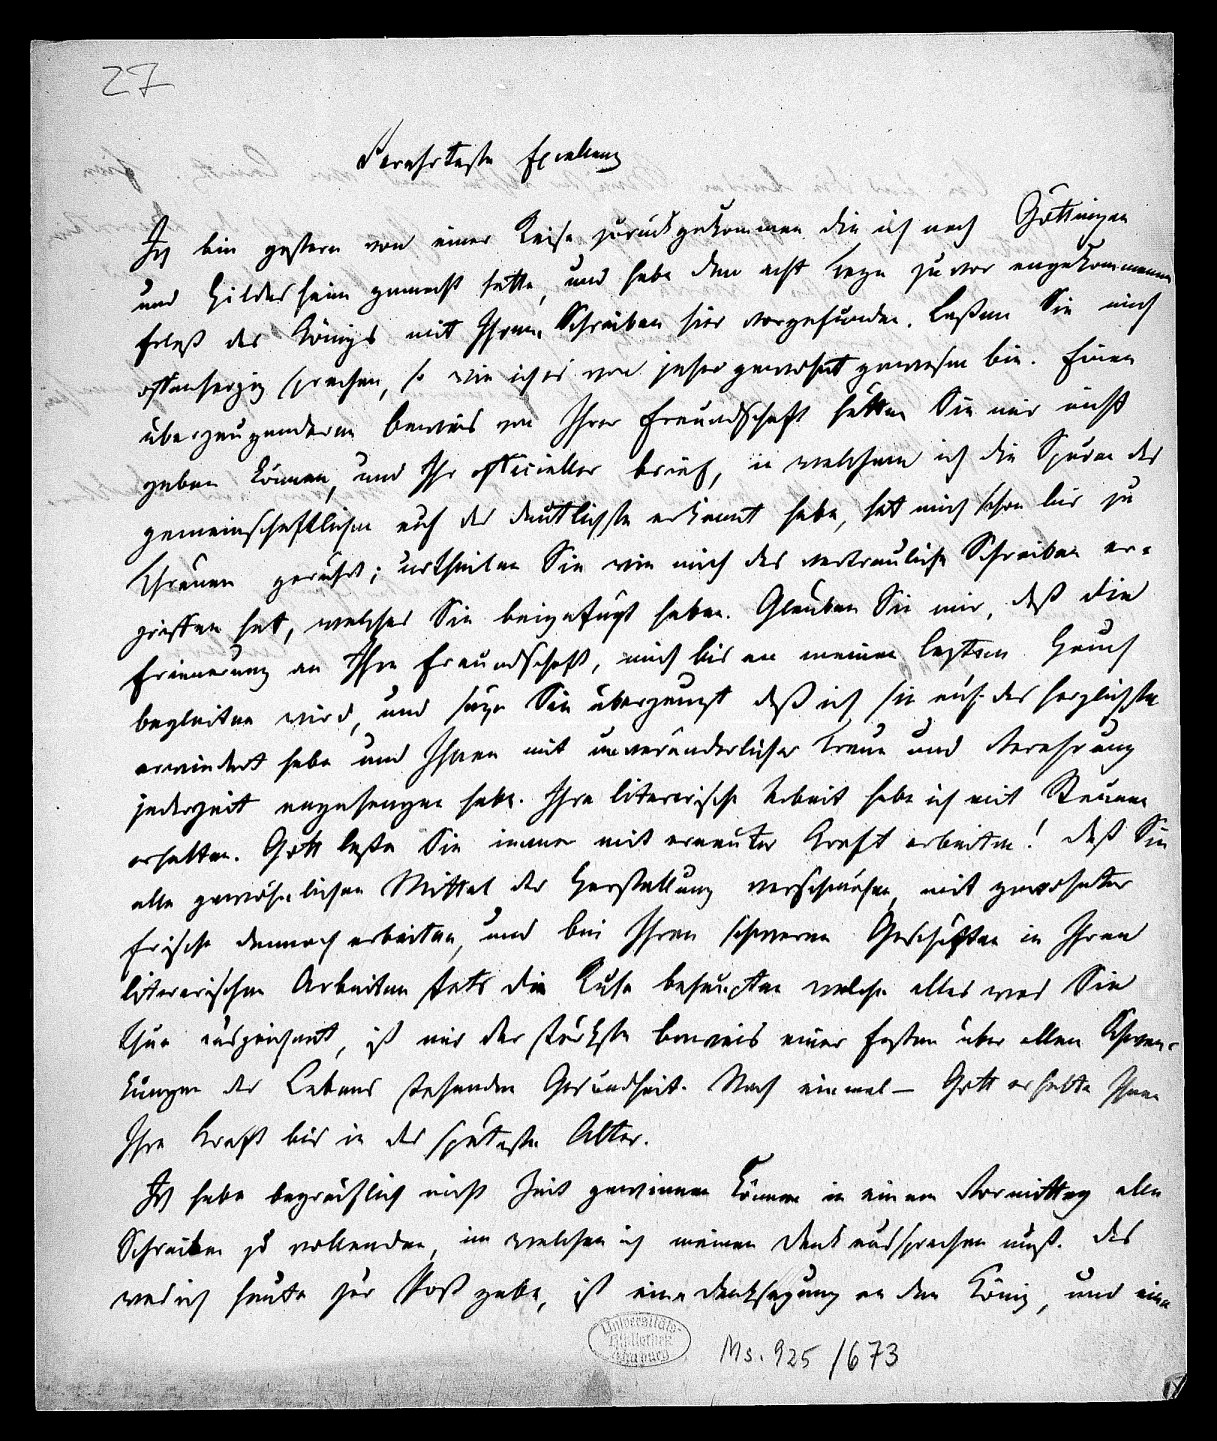 27
Verehrteste Excellenz
Ich bin gestern von einer Reise zurückgekommen die ich nach Göttingen
und Hildesheim gemacht hatte, und habe den acht Tage zuvor angekommenen
Erlaß des Königs mit Ihrem Schreiben hier vorgefunden. Laßen Sie mich
offenherzig sprechen, so wie ich es von jeher gewohnt gewesen bin. Einen
überzeugenderen beweis von Ihrer Freundschaft hätten Sie mir nicht
geben können, und Ihr officieller brief, in welchem ich die Spuren des
gemeinschaftlichen auf das deutlichste erkannt habe, hat mich schon bis zu
Thränen gerührt; urtheilen Sie wie mich das vertrauliche Schreiben er-
griffen hat, welches Sie beigefügt haben. Glauben Sie mir, daß die
Erinnerung an Ihre Freundschaft, mich bis an meinen lezten Hauch
begleiten wird, und seyn Sie überzeugt daß ich sie auf das herzlichste
erwiedert habe und Ihnen mit unveränderlicher Treue und Verehrung
jederzeit angehangen habe. Ihre literarische Arbeit habe ich mit Staunen
erhalten. Gott laße Sie immer mit erneuter Kraft arbeiten! daß Sie
alle gewöhnlichen Mittel der Herstellung verschmähen, mit gewohnter
Frische dennoch arbeiten, und bei Ihren schweren Geschäften in Ihren
literarischen Arbeiten stets die Ruhe behaupten welche alles was Sie
thun auszeichnet, ist mir der stärkste beweis einer festen über allen Schwan-
kungen des Lebens stehenden Gesundheit. Noch einmal – Gott erhalte Ihnen
Ihre Kraft bis in das späteste Alter.
Ich habe begreiflich nicht Zeit gewinnen können in einem Vormittag alle
Schreiben zu vollenden, in welchen ich meinen Dank aussprechen muß. Das
was ich heute zur Post gebe, ist eine Danksagung an den König, und eine
Universitäts-
Bibliothek
Marburg
Ms. 925/673